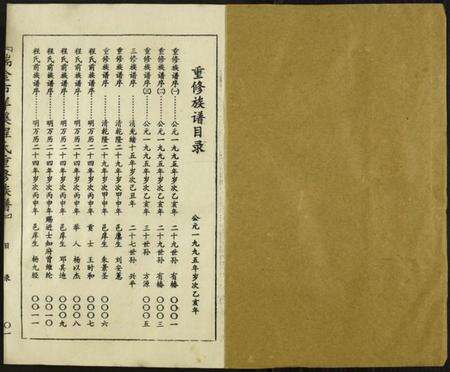 重修族谱目录
公元一九九五年岁次乙亥年
重修族谱序(一)………公元一九九五年岁次乙亥年 二十九世孙 有椿 〇〇〇一
重修族谱序(二)………公元一九九五年岁次乙亥年 二十九世孙 有椿 〇〇〇三
重修族谱序(三)………公元一九九五年岁次乙亥年 三十世孙 方源 〇〇〇五
三修族谱序………清光绪十五年岁次己丑年 二十七世孙 兴平
重修族谱序………清乾隆二十九年岁次甲申年 邑廪生 刘安
重修族谱序………清乾隆二十九年岁次甲申年 邑庠生 朱景圣 〇〇〇六
程氏前族谱序………明万历二十四年岁次丙申年 贡士 王时和 〇〇〇七
程氏前族谱序………明万历二十四年岁次丙申年 举人 杨以杰 〇〇〇八
程氏前族谱序………明万历二十四年岁次丙申年 邑庠生 邓其迪 〇〇〇九
程氏前族谱序………明万历二十四年岁次丙申年赐进士知府曾维纶 〇〇一〇
程氏前族谱序………明万历二十四年岁次丙申年 邑庠生 杨九经 〇〇一一
程氏重修族谱』
目录
〇一